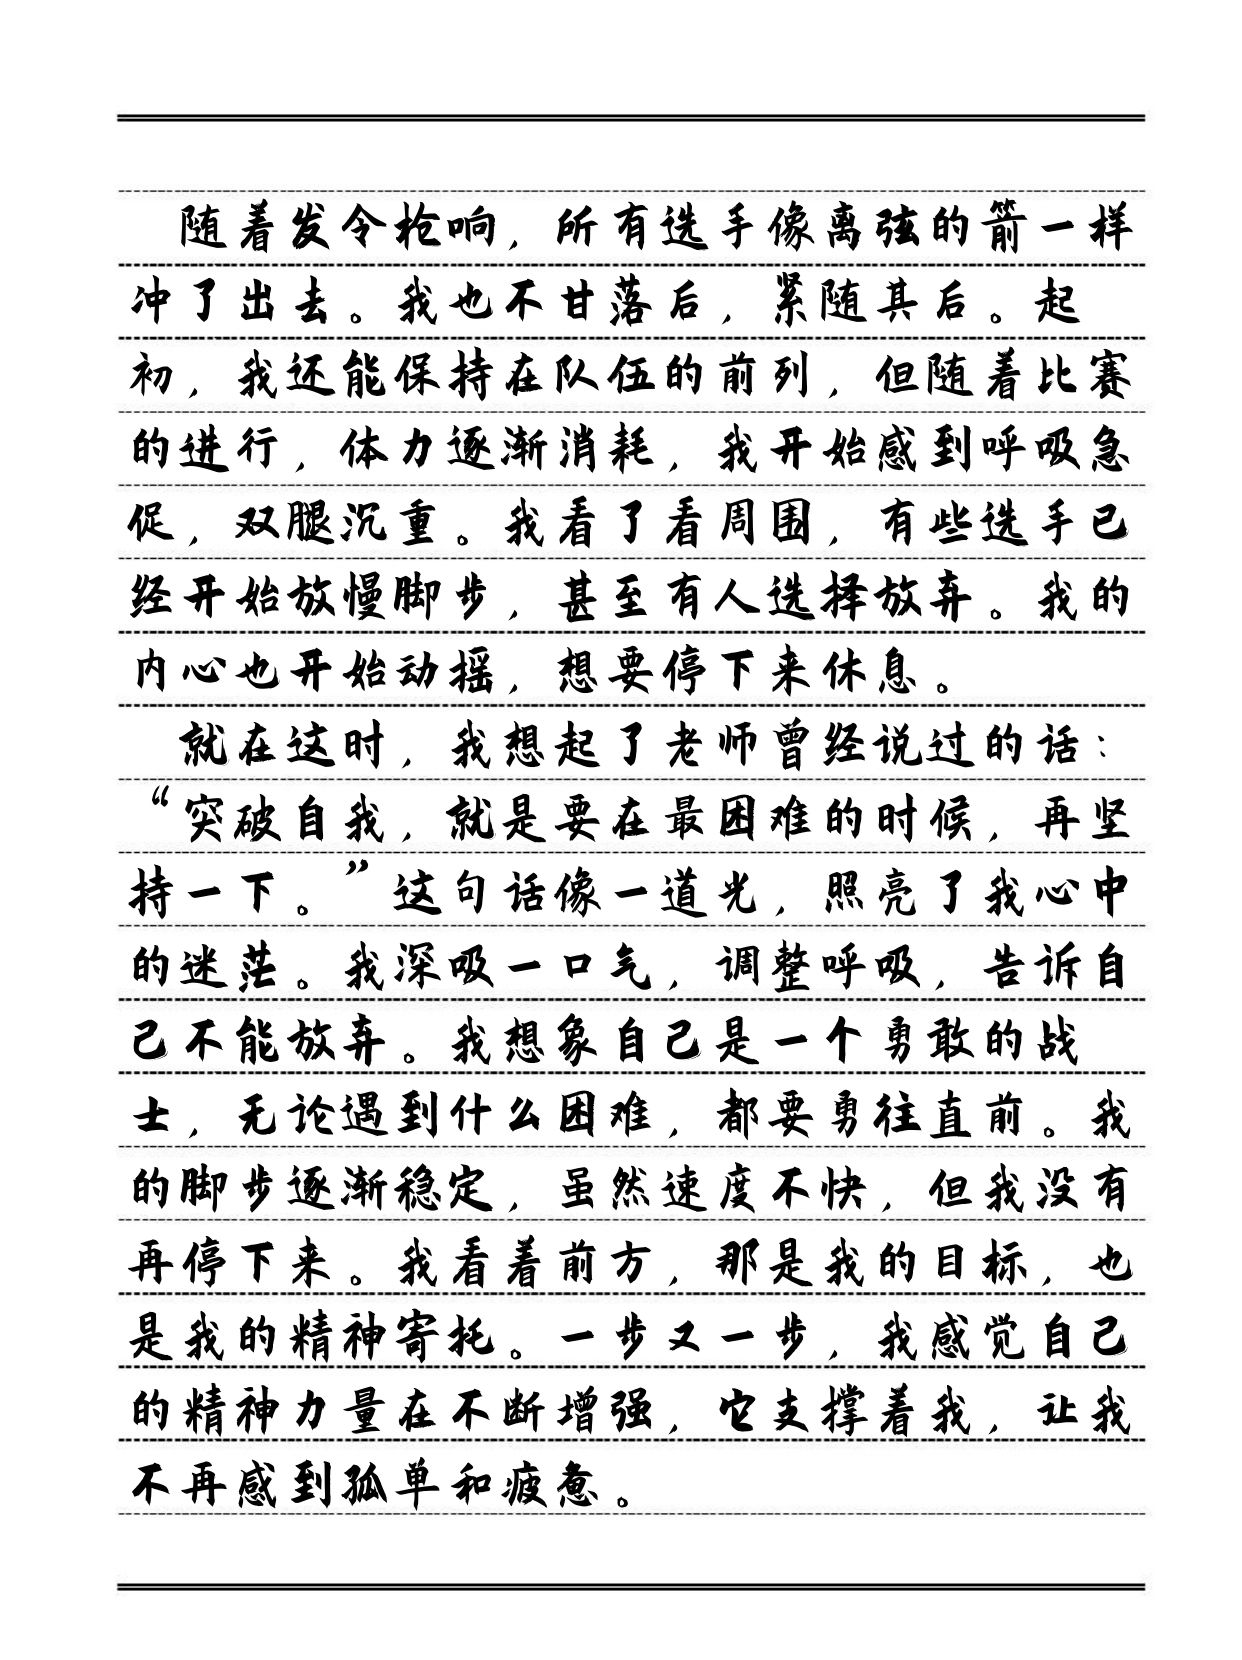 随着发令枪响，所有选手像离弦的箭一样
冲了出去。我也不甘落后，紧随其后。起
初，我还能保持在队伍的前列，但随着比赛
的进行，体力逐渐消耗，我开始感到呼吸急
促，双腿沉重。我看了看周围，有些选手已
经开始放慢脚步，甚至有人选择放弃。我的
内心也开始动摇，想要停下来休息。
就在这时，我想起了老师曾经说过的话：
“突破自我，就是要在最困难的时候，再坚
持一下。”这句话像一道光，照亮了我心中
的迷茫。我深吸一口气，调整呼吸，告诉自
己不能放弃。我想象自己是一个勇敢的战
士，无论遇到什么困难，都要勇往直前。我
的脚步逐渐稳定，虽然速度不快，但我没有
再停下来。我看着前方，那是我的目标，也
是我的精神寄托。一步又一步，我感觉自己
的精神力量在不断增强，它支撑着我，让我
不再感到孤单和疲惫。